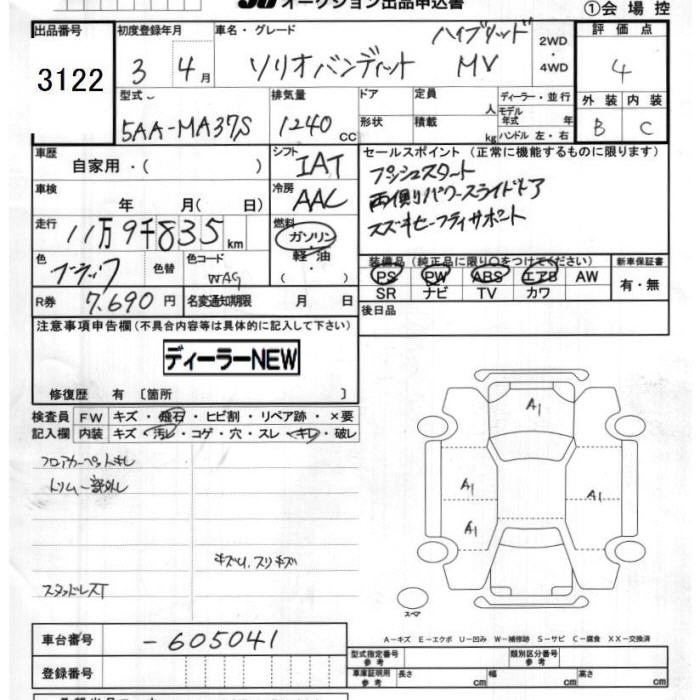 オークション出品申込書
①会場控
出品番号 初度登録年月 車名・グレード 評価点
3122 3 4月 ソリオバンディット ハイブリッド MV 2WD・4WD 4
型式 排気量 ドア 定員 ディーラー・並行 外装 内装
5AA-MA37S 1240cc 形状 積載 人 kg モデル年式 年 ハンドル 左・右 B C
車歴 自家用・( ) シフト IAT セールスポイント (正常に機能するものに限ります)
プッシュスタート
車検 年 月( 日) 冷房 AAC 両側パワースライドドア
走行 11万9千835km 燃料 ガソリン・軽油・( ) スズキセーフティサポート
色 ブラック 色替 色コード 装備品(純正品に限り○をつけてください) 新車保証書
PS PW ABS エアB AW 有・無
SR ナビ TV カワ
R券 7,690円 名変通知期限 月 日 後日品
注意事項申告欄(不具合内容等は具体的に記入して下さい)
ディーラーNEW
修復歴 有 〔箇所 〕
検査員 FW キズ・飛石・ヒビ割・リペア跡・×要
記入欄 内装 キズ・汚レ・コゲ・穴・スレ・キレ・破レ
フロアカーペットキレ
トリム一部外し
キズ小、スリキズ
スタッドレスT
A1
A1 A1
A1
スペア
A-キズ E-エクボ U-凹み W-補修跡 S-サビ C-腐食 XX-交換済
車台番号 -605041 型式指定番号 参考 類別区分番号 参考
登録番号 車庫証明用 参考 長さ cm 幅 cm 高さ cm